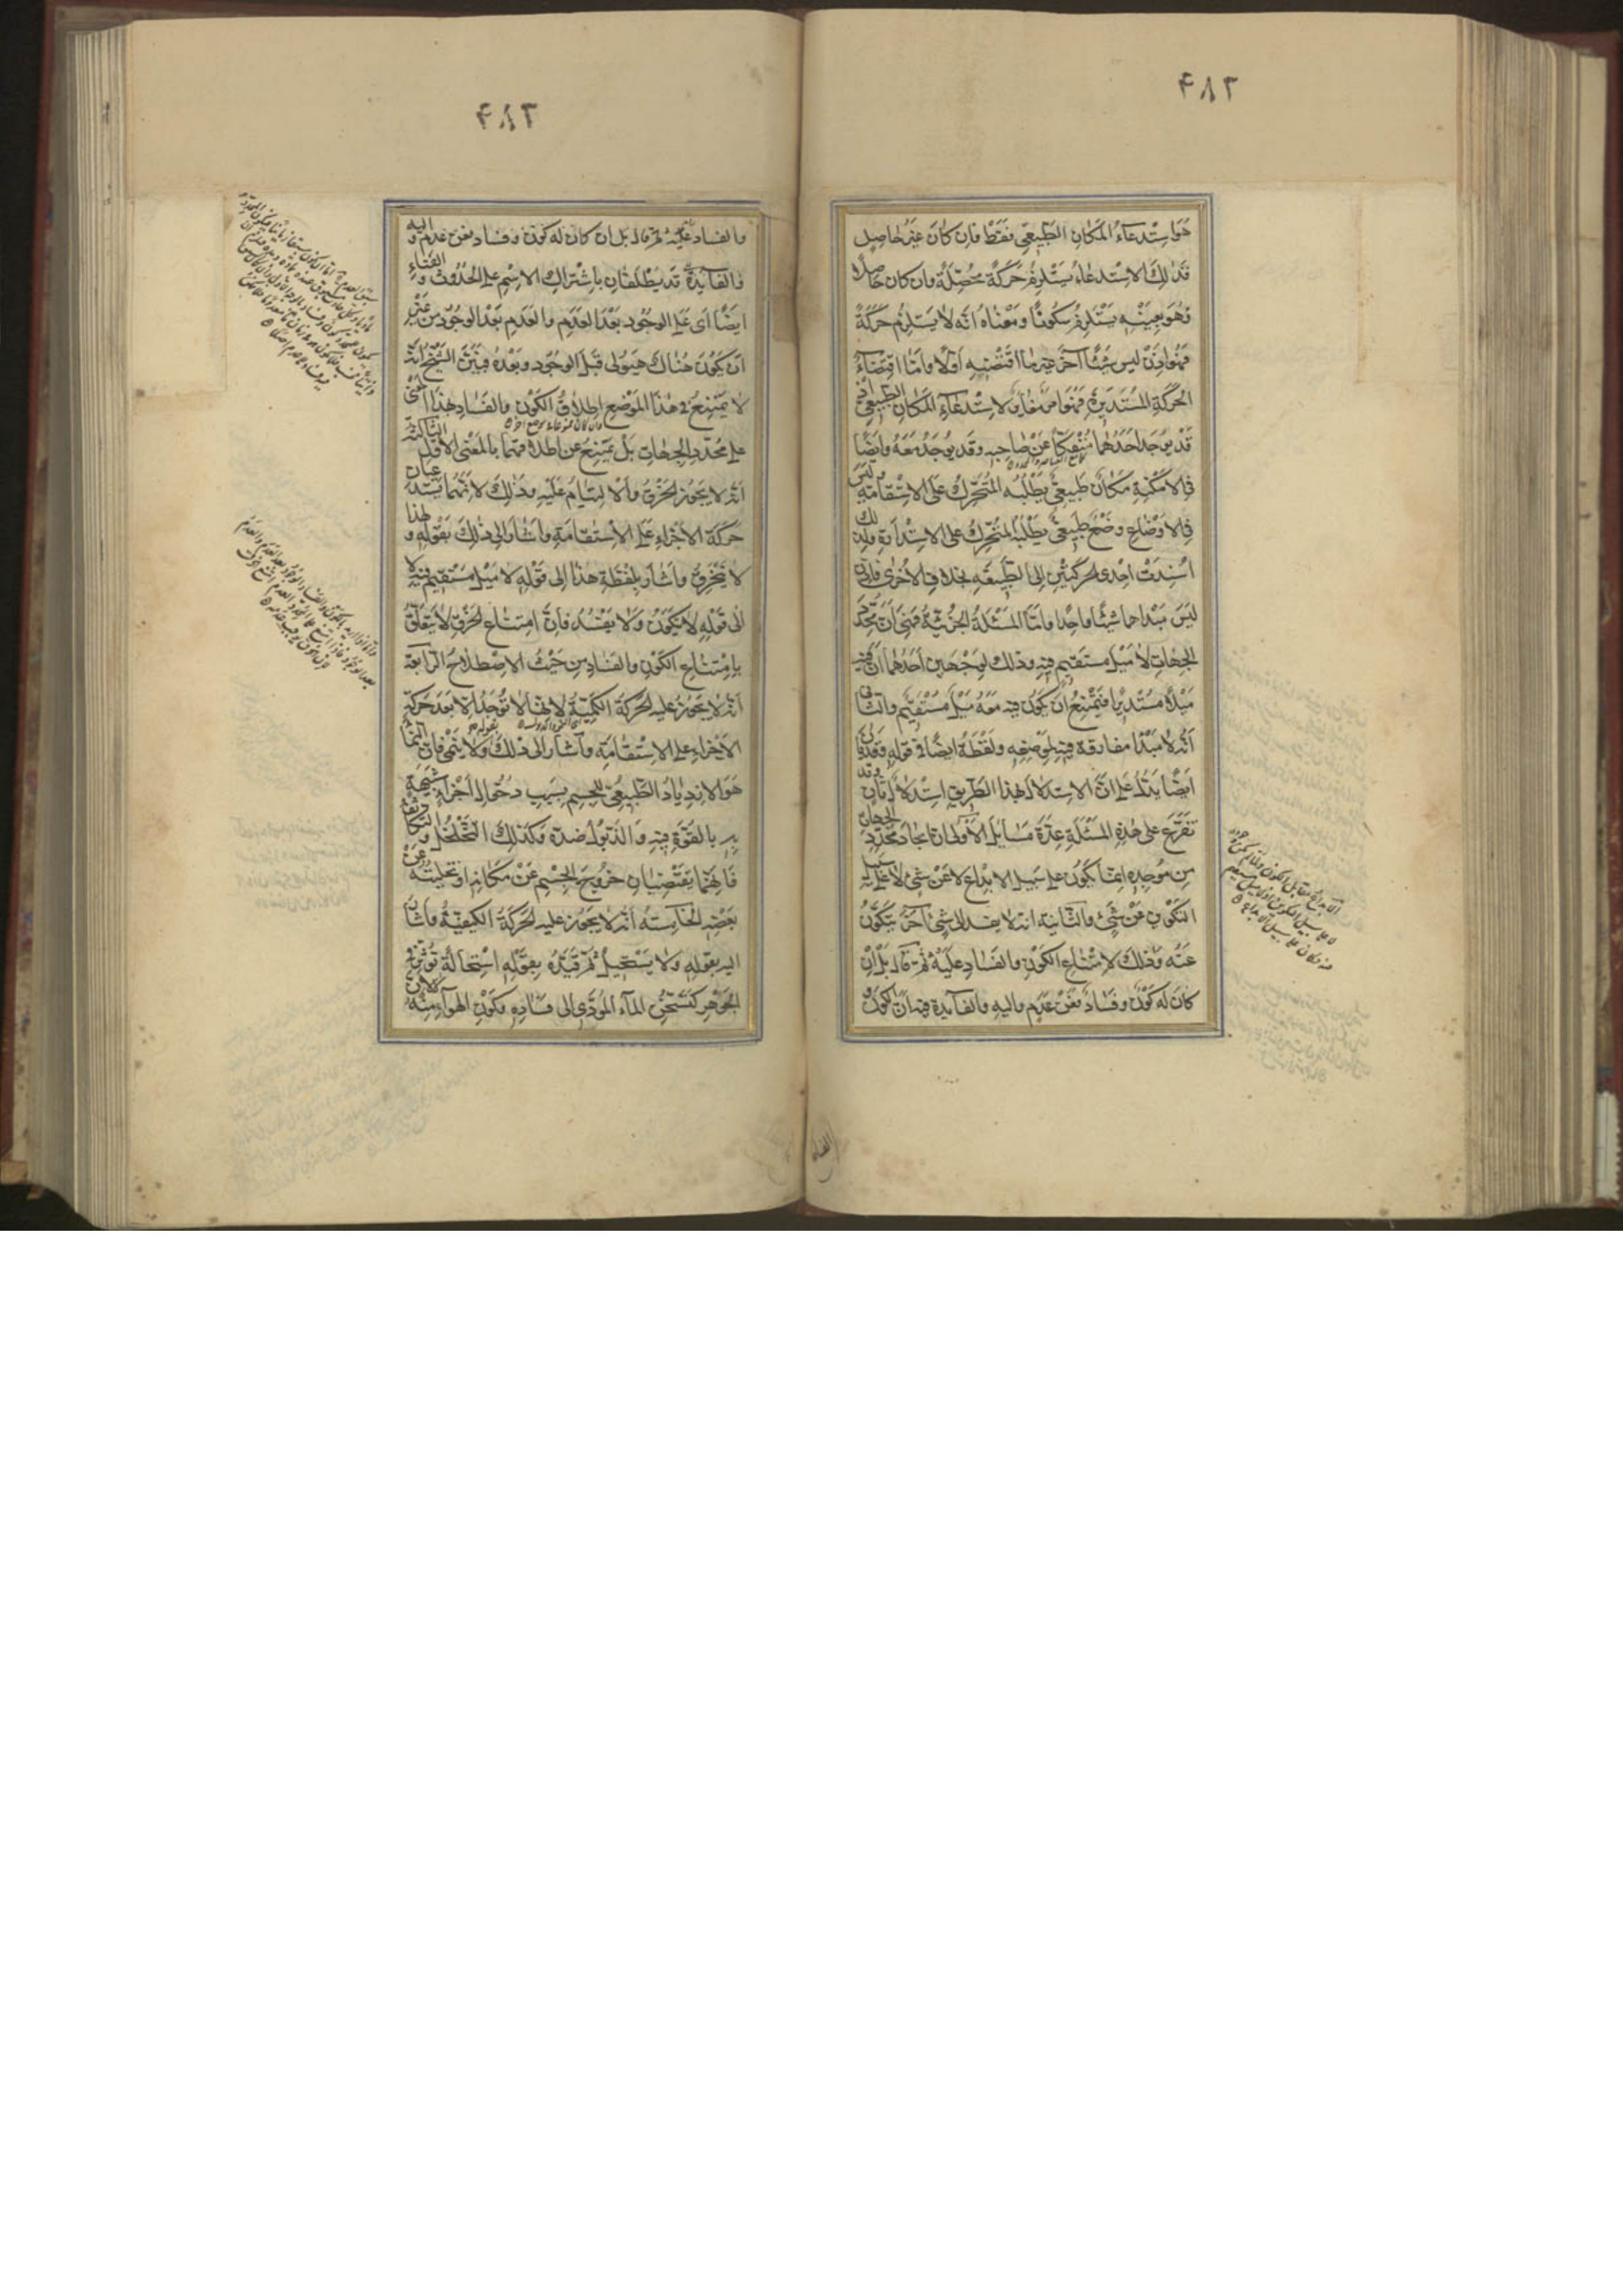 ۴۸۲
هو استدعاء المكان الطبيعي فقط فان كان غير حاصل
فذلك الاستدعاء يستلزم حركة محصلة وان كان حاصلا
فهو بعينه يستلزم سكونا ومعناه انه لا يستلزم حركة
فهو اذن ليس شيئا آخر غير ما اقتضيه اولا واما اقتضاء
الحركة المستديرة فهو امر مغاير لاستدعاء المكان الطبيعي اذ
قد يوجد احدهما منفكا عن صاحبه وقد يوجد معه وايضا
في الامكنة مكان طبيعي يطلبه المتحرك على الاستقامة وليس
في الاوضاع وضع طبيعي يطلبه المتحرك على الاستدارة ولذلك
اسندت احدى الحركتين الى الطبيعة بخلاف الاخرى فاذن
ليس مبداهما شيئا واحدا واما المسئلة الجزئية فهي ان محدد
الجهات لا ميل مستقيم فيه وذلك لوجهين احدهما ان فيه
ميلا مستديرا فيمتنع ان يكون فيه معه ميل مستقيم والثاني
انه لا مبدا مفارقة فيه لموضعه ولفظة ايضا في قوله وقد بان
ايضا يدل على ان الاستدلال بهذا الطريق استدلال ثان وقد
تفرع على هذه المسئلة عدة مسايل الاولى ان ايجاد محدد الجهات
من موجده انما يكون على سبيل الابداع لا عن شئ لا على سبيل
التكون عن شئ والثانية انه لا يفسد الى شئ آخر يتكون
عنه وذلك لامتناع الكون والفساد عليه ثم قال بل ان
كان له كون وفساد فعن عدم واليه والفايدة فيه ان الكون و
الفساد
۴۸۳
والفساد عليه ثم قال بل ان كان له كون وفساد فعن عدم واليه
والفايدة قد يطلقان باشتراك الاسم على الحدوث والفناء
ايضا اى على الوجود بعد العدم والعدم بعد الوجود من غير
ان يكون هناك هيولى قبل الوجود وبعده فبين الشيخ انه
لا يمتنع في هذا الموضع اطلاق الكون والفساد بهذا المعنى
على محدد الجهات بل يمتنع عن اطلاقهما بالمعنى الاول الثالثة
انه لا يجوز الخرق والالتيام عليه وذلك لانهما يستدعيان
حركة الاجزاء على الاستقامة واشار الى ذلك بقوله ولهذا
لا ينخرق واشار بلفظة هذا الى قوله لا ميل مستقيم فيه لا
الى قوله لا يكون ولا يفسد فان امتناع الخرق لا يتعلق
بامتناع الكون والفساد من حيث الاصطلاح الرابعة
انه لا يجوز عليه الحركة الكمية لانها لا توجد الا بعد حركة
الاجزاء على الاستقامة واشار الى ذلك بقوله ولا ينمى فان النماء
هو الازدياد الطبيعي للجسم بسبب دخول اجزاء شبيهة
به بالقوة فيه والذبول ضده وكذلك التخلخل والتكاثف
فانهما يقتضيان خروج الجسم عن مكانه او تخليته عن
بعضه الخامسة انه لا يجوز عليه الحركة الكيفية واشار
اليه بقوله ولا يستحيل ثم قيده بقوله استحالة تؤثر في
الجوهر كتسخن الماء المؤدى الى فساده وتكون الهواء منه لان